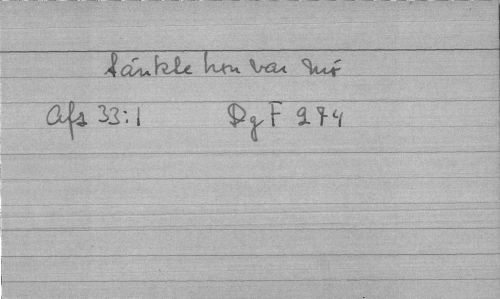 Sänkte hon var mö
Afs 33:1 DgF 274